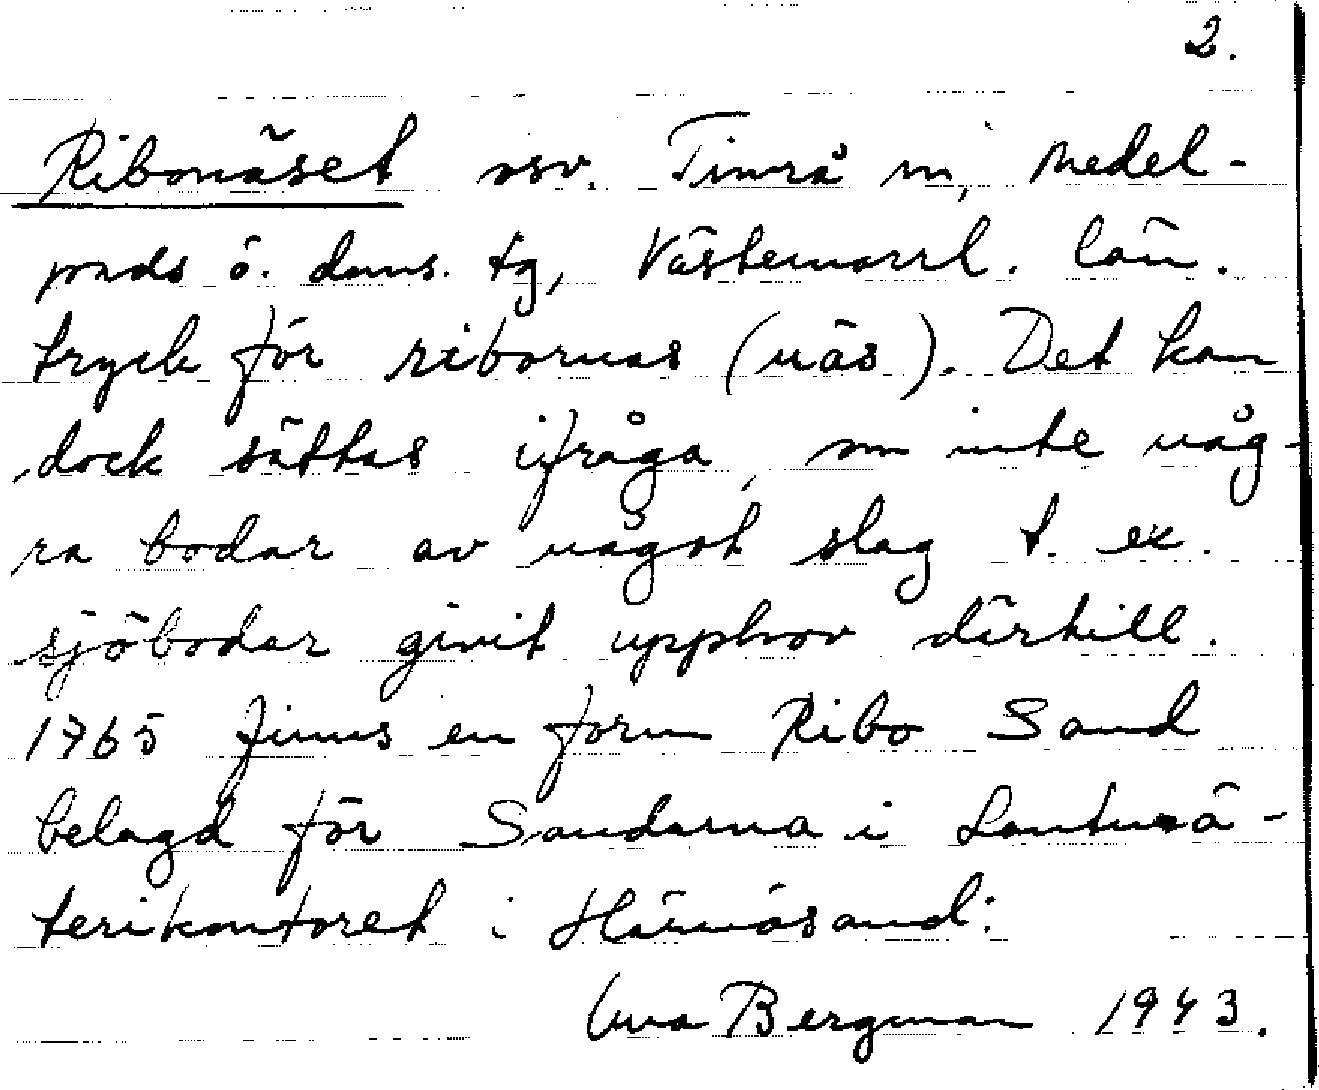 2.
Ribonäset osv. Timrå sn, Medel-
pads ö. doms. tg, Västernorrl. län.
tryck för ribornas (näs). Det kan
dock sättas ifråga, om inte någ-
ra bodar av något slag t. ex.
sjöbodar givit upphov därtill.
1765 finns en form Ribo Sand
belagd för Sandarna i Lantmä-
terikontoret i Härnösand.
Bergman 1943.